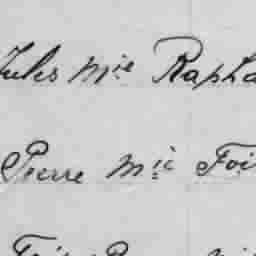 Jules Mie Rapha
Pierre Mie Foi